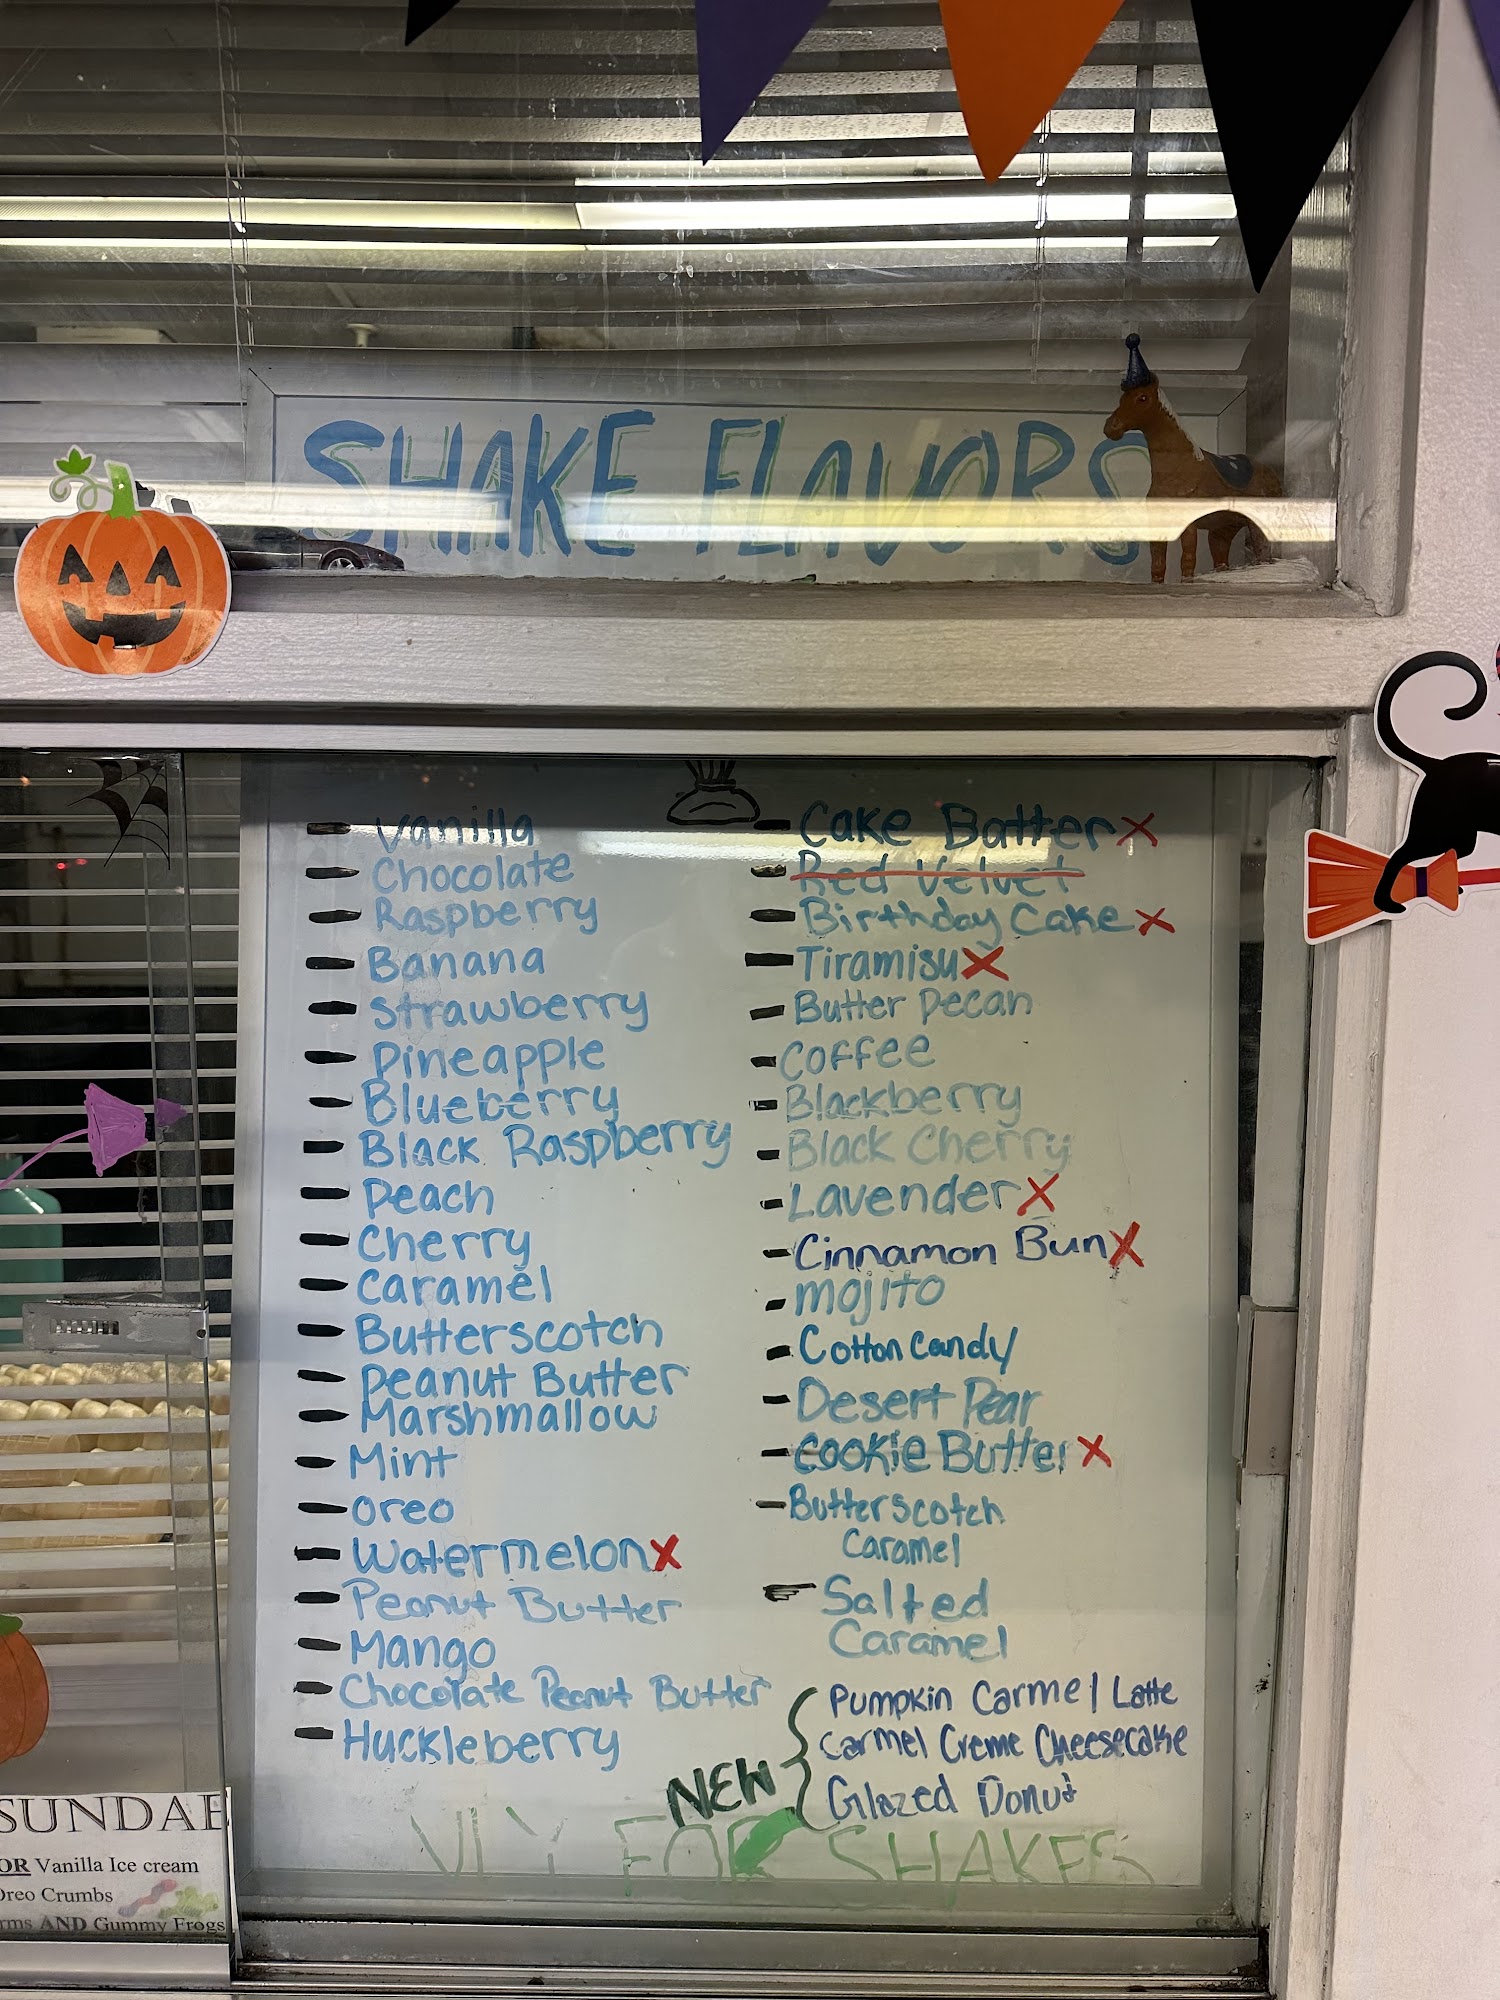 SHAKE FLAVORS
Vanilla
Chocolate
Raspberry
Banana
Strawberry
Pineapple
Blueberry
Black Raspberry
Peach
Cherry
Caramel
Butterscotch
Peanut Butter
Marshmallow
Mint
Oreo
Watermelon X
Peanut Butter
Mango
Chocolate Peanut Butter
Huckleberry
Cake Batter X
Red Velvet
Birthday Cake X
Tiramisu X
Butter Pecan
Coffee
Blackberry
Black Cherry
Lavender X
Cinnamon Bun X
Mojito
Cotton Candy
Desert Pear
Cookie Butter X
Butterscotch
Caramel
Salted
Caramel
NEW
Pumpkin Carmel Latte
Carmel Creme Cheesecake
Glazed Donut
NLY FOR SHAKES
SUNDAE
OR Vanilla Ice cream
Oreo Crumbs
rms AND Gummy Frogs